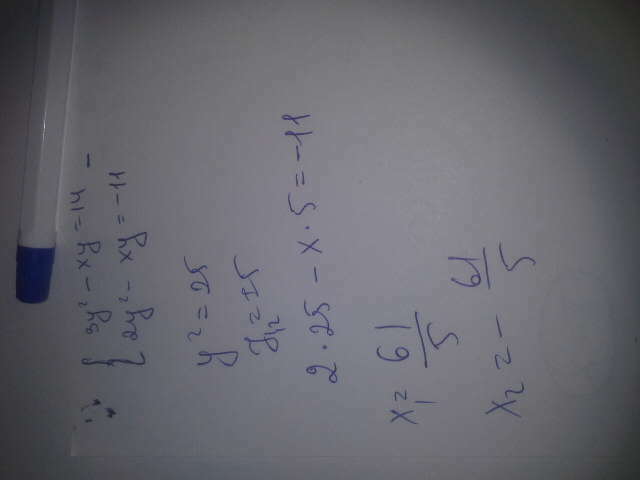 1) { 3y² - xy = 14 -
2y² - xy = -11
y² = 25
y₁,₂ = ±5
2 · 25 - x · 5 = -11
x₁ = 61/5
x₂ = - 61/5